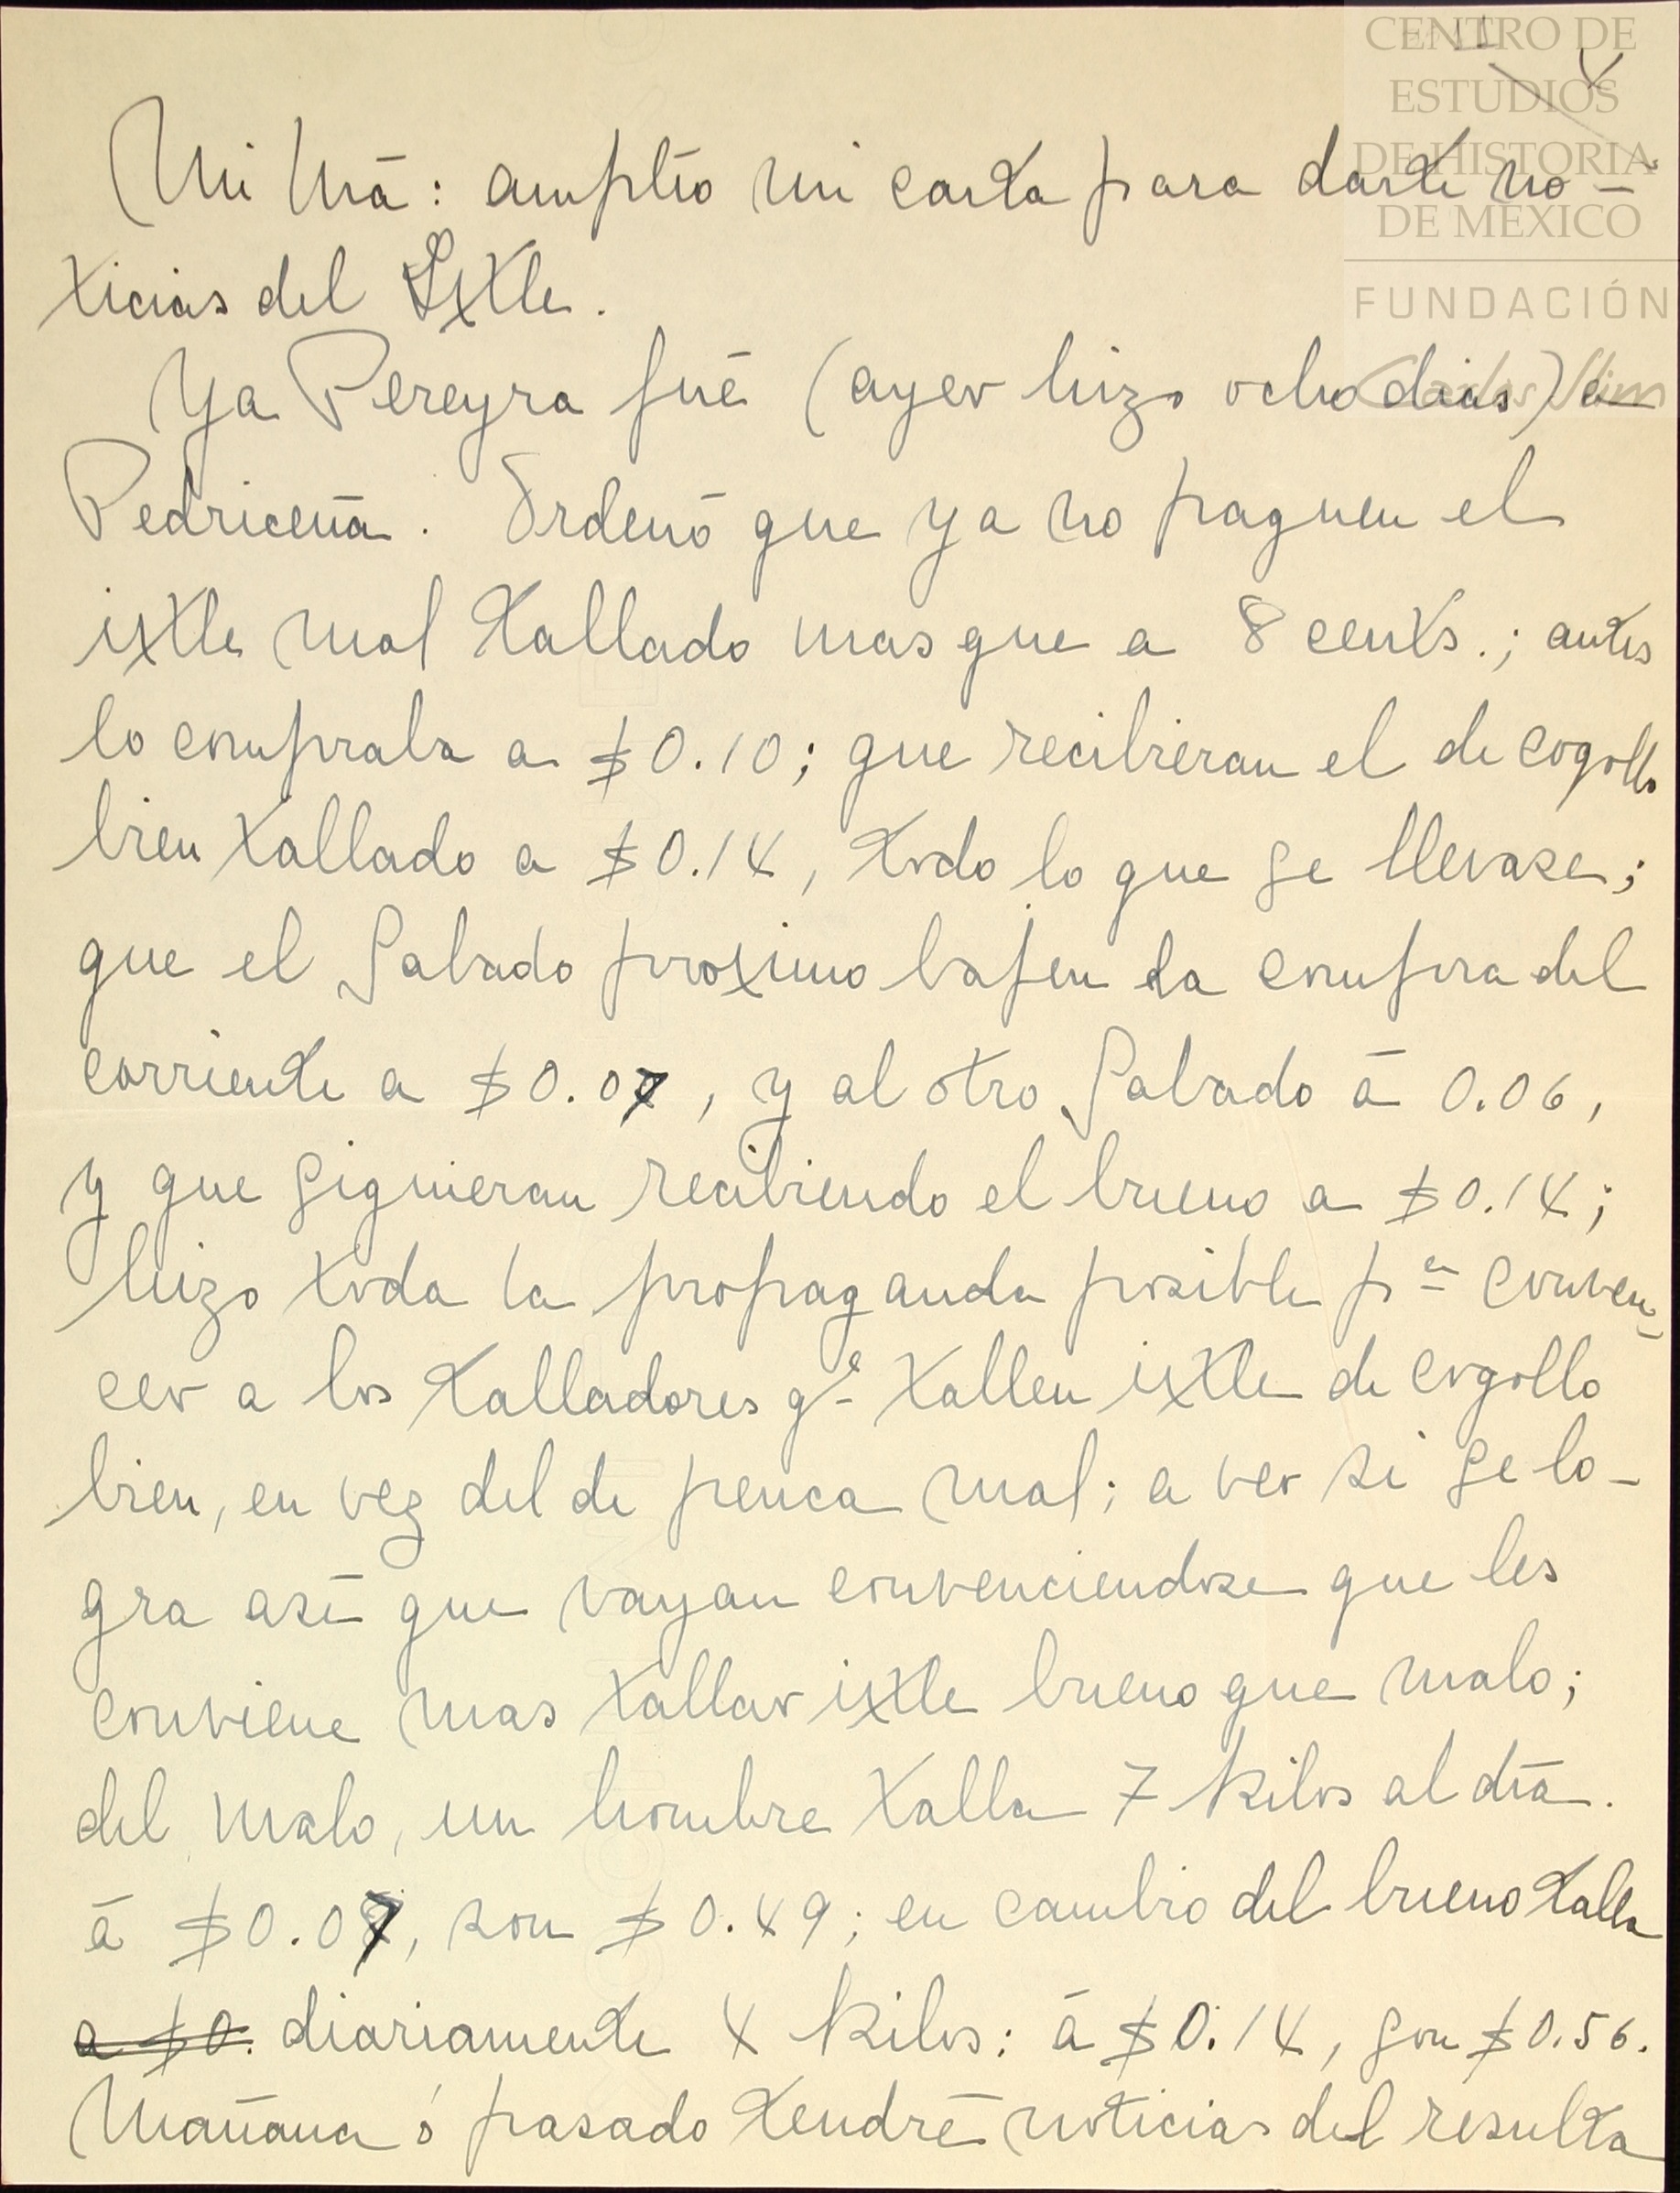 CENTRO DE
ESTUDIOS
DE HISTORIA
DE MÉXICO
FUNDACIÓN
Carlos Slim
4
Mi Má: amplío mi carta para darte no-
ticias del Ixtle.
Ya Pereyra fué (ayer hizo ocho dias) a
Pedriceña. Ordenó que ya no paguen el
ixtle mal tallado mas que a 8 cents.; antes
lo compraba a $0.10; que recibieran el de cogollo
bien tallado a $0.14, todo lo que se llevase;
que el Sabado proximo bajen la compra del
corriente a $0.07, y al otro Sabado á 0.06,
y que siguieran recibiendo el bueno a $0.14;
hizo toda la propaganda posible pa conven-
cer a los talladores qe tallen ixtle de cogollo
bien, en vez del de penca mal; a ver si se lo-
gra así que vayan convenciendose que les
conviene mas tallar ixtle bueno que malo;
del malo, un hombre talla 7 kilos al día.
á $0.07, son $0.49; en cambio del bueno talla
a $0. diariamente 4 kilos: á $0.14, son $0.56.
Mañana ó pasado tendré noticias del resulta